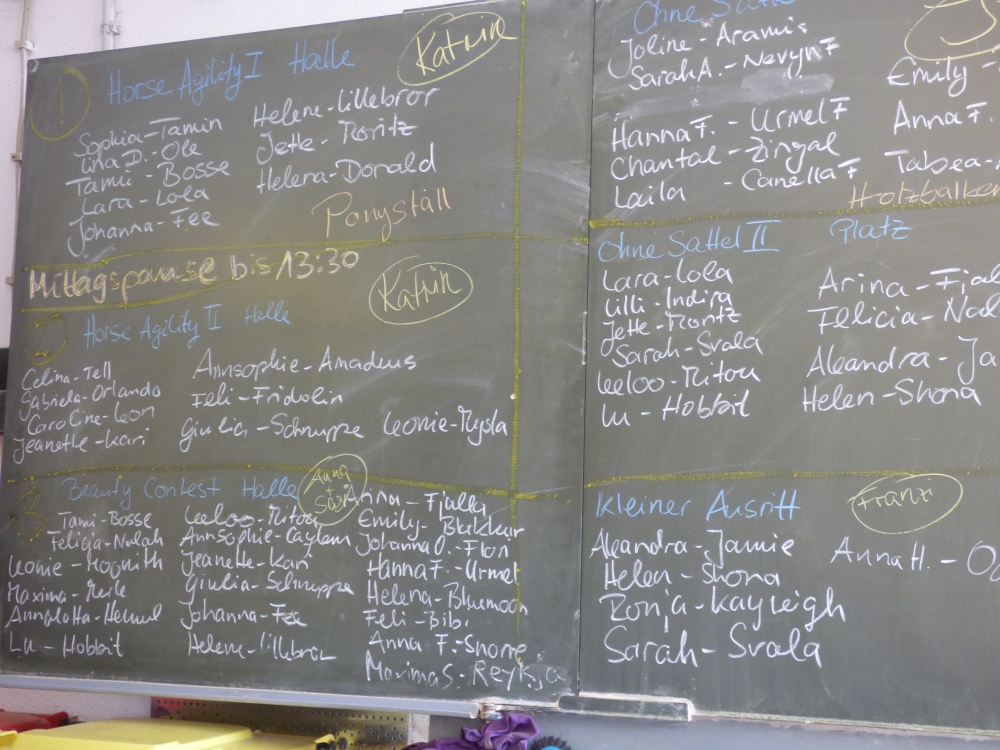 1
Horse Agility I Halle
Katrin
Sophia-Tamin
Lina D.-Ole
Tami-Bosse
Lara-Lola
Johanna-Fee
Helene-Lillebror
Jette-Moritz
Helena-Donald
Ponystall
Mittagspause bis 13:30
2
Horse Agility II Halle
Katrin
Celina-Tell
Gabriela-Orlando
Caroline-Leon
Jeanette-Kari
Annsophie-Amadeus
Feli-Fridolin
Giulia-Schnuppe
Leonie-Mysla
3
Beauty Contest Halle
Anna
Star
Tami-Bosse
Felicia-Nalah
Leonie-
Maxima-Merle
Annalotta-
Lu-Hobbit
Leeloo-Titou
Annsophie-
Jeanette-Kari
Giulia-Schnuppe
Johanna-Fee
Helene-Lillebror
Arina-Fjalla
Emily-
Johanna O.-Flori
Hanna F.-Urmel
Helena-Blumoon
Feli-Bibi
Anna F.-Snorre
Maxima S.-Reykja
Ohne Sattel
Joline-Aramis
Sarah A.-Nevyn F
Hanna F.-Urmel F
Chantal-Zingal
Laila-Canella F
Emily-
Anna F.
Tabea-
Holzbalken
Ohne Sattel II Platz
Lara-Lola
Lilli-Indira
Jette-Moritz
Sarah-Svala
Leeloo-Titou
Lu-Hobbit
Arina-Fjal
Felicia-Nal
Aleandra-Ja
Helen-Shona
Kleiner Ausritt
Franzi
Aleandra-Jamie
Helen-Shona
Ronja-Kayleigh
Sarah-Svala
Anna H.-